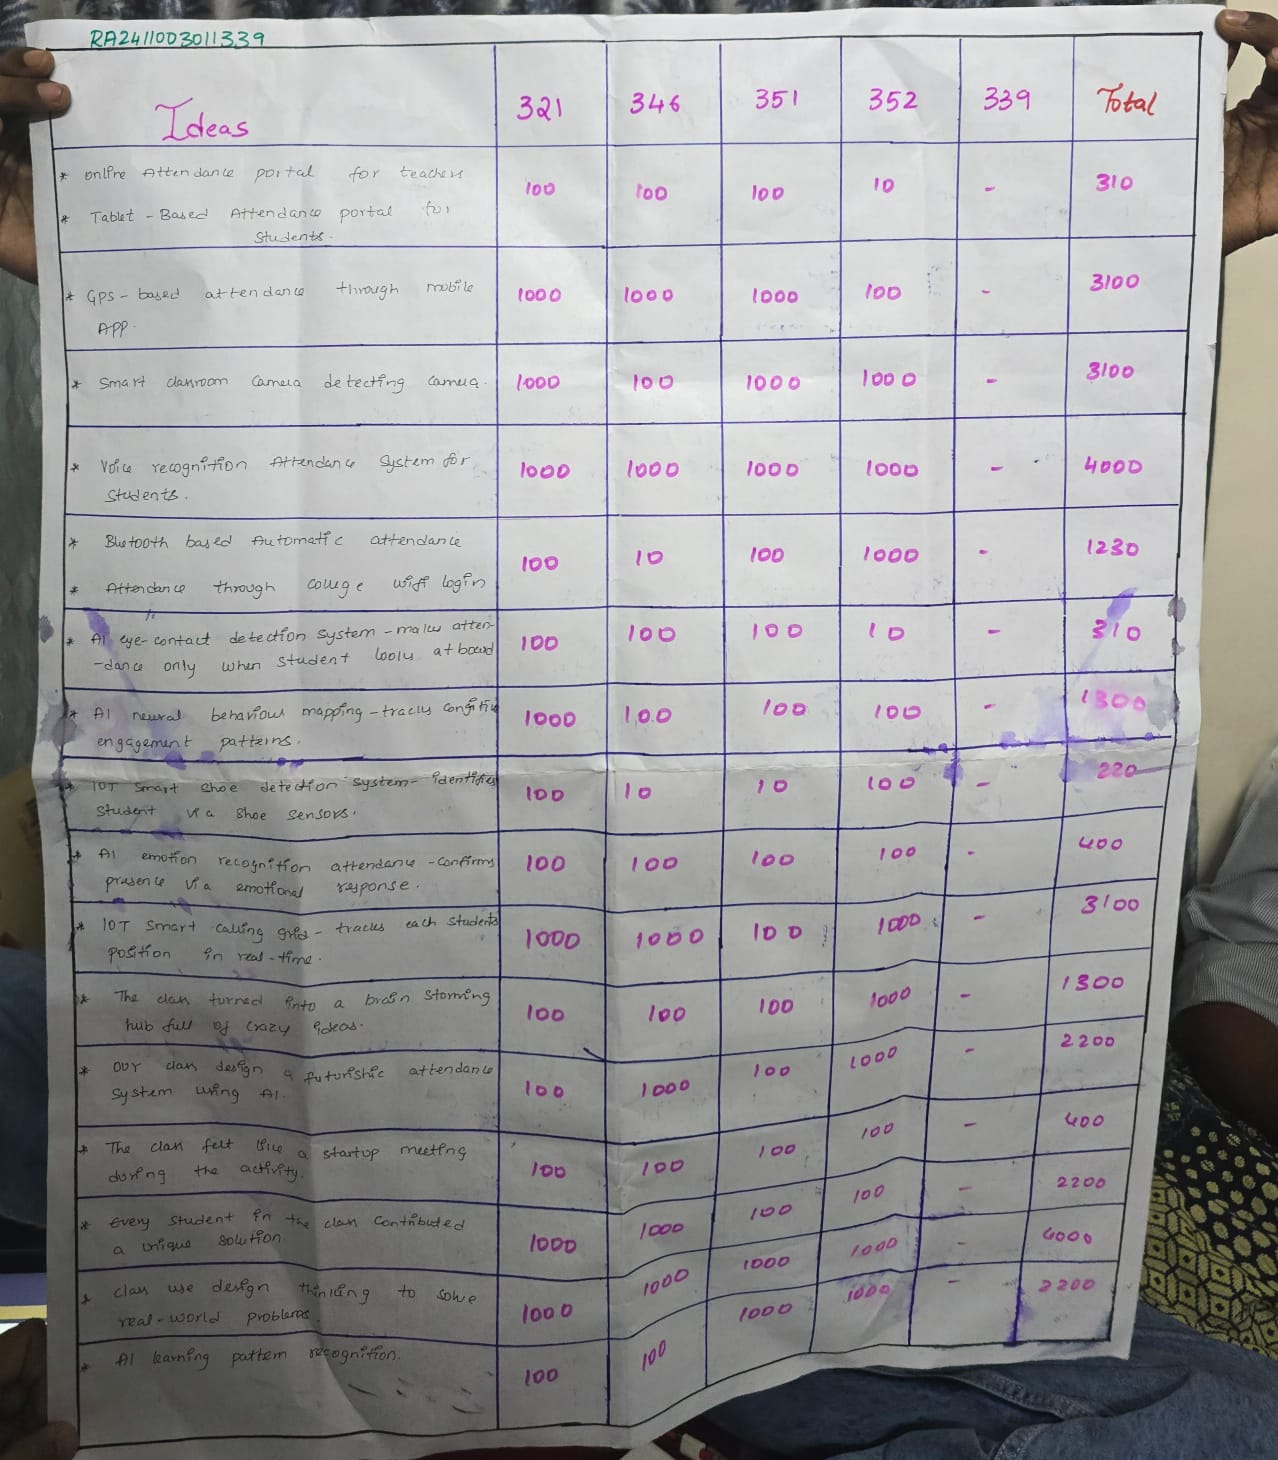 RA2411003011339
Ideas 321 346 351 352 339 Total
* Online Attendance portal for teachers
* Tablet - Based Attendance portal for
students.
100 100 100 10 - 310
* GPS - based attendance through mobile
APP.
1000 1000 1000 100 - 3100
* Smart classroom camera detecting camera.
1000 100 1000 1000 - 3100
* Voice recognition Attendance system for
students.
1000 1000 1000 1000 - 4000
* Bluetooth based Automatic attendance
* Attendance through college wifi login
100 10 100 1000 - 1230
* AI eye-contact detection system - marks atten-
-dance only when student looks at board
100 100 100 10 - 310
* AI neural behaviour mapping - tracks
engagement patterns.
1000 100 100 100 - 1300
* IOT smart shoe detection system - identifies
student via shoe sensors.
100 10 10 100 - 220
* AI emotion recognition attendance - confirms
presence via emotional response.
100 100 100 100 - 400
* IOT smart calling grid - tracks each students
position in real-time.
1000 1000 100 1000 - 3100
* The class turned into a brain storming
hub full of crazy ideas.
100 100 100 1000 - 1300
* Our class design a futurishic attendance
system using AI.
100 1000 100 1000 - 2200
* The class felt like a startup meeting
during the activity.
100 100 100 100 - 400
* Every student in the class contributed
a unique solution
1000 1000 100 100 - 2200
* class use design thinking to solve
real-world problems.
1000 1000 1000 1000 - 4000
* AI learning pattern recognition.
100 100 1000 1000 - 2200